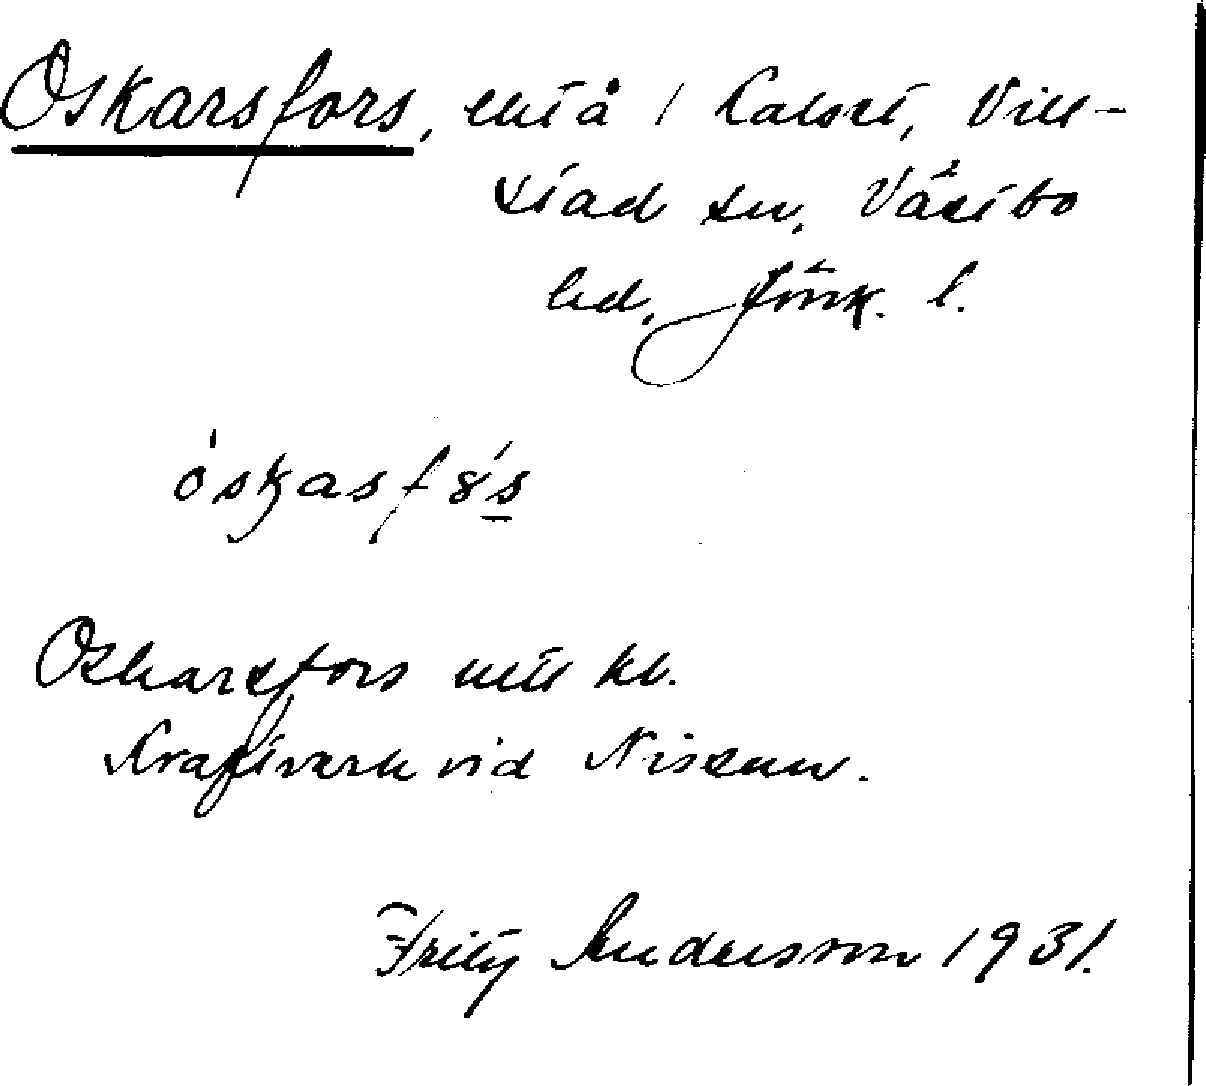 Oskarsfors, utiå / Kalset, Vill-
stad sn, Västbo
hd, Jönk. l.
Oskarsfors mtl kb.
Kraftverk vid Nissan.
Fritz Andersson 1931.